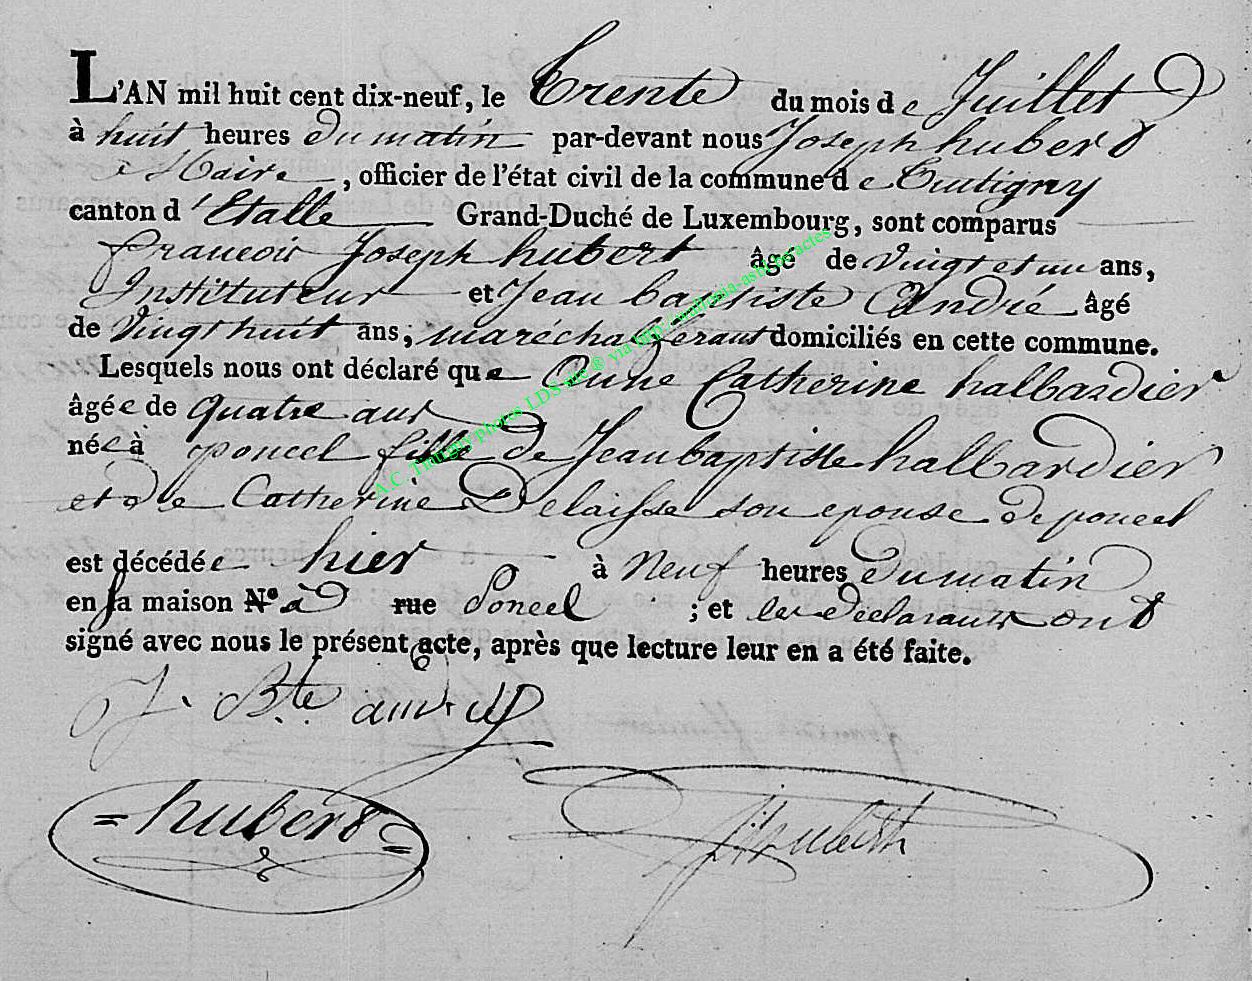 L'AN mil huit cent dix-neuf, le trente du mois de Juillet
à huit heures du matin par-devant nous Joseph hubert
Maire, officier de l'état civil de la commune de tintigny
canton d'Etalle Grand-Duché de Luxembourg, sont comparus
francois Joseph hubert âgé de vingt et un ans,
Instituteur et Jean baptiste André âgé
de vingt huit ans; maréchal ferant domiciliés en cette commune.
Lesquels nous ont déclaré que Anne Catherine halbardier
âgée de quatre ans
née à poncel fille de Jean baptiste halbardier
et de Catherine Delaisse son epouse de poncel
est décédée hier à Neuf heures du matin
en sa maison N.º à rue Poncel ; et les déclarants ont
signé avec nous le présent acte, après que lecture leur en a été faite.
J. Bte. andré
hubert
A.C. Tintigny photos LDS site ® via http://wallonia-asbl.be/actes